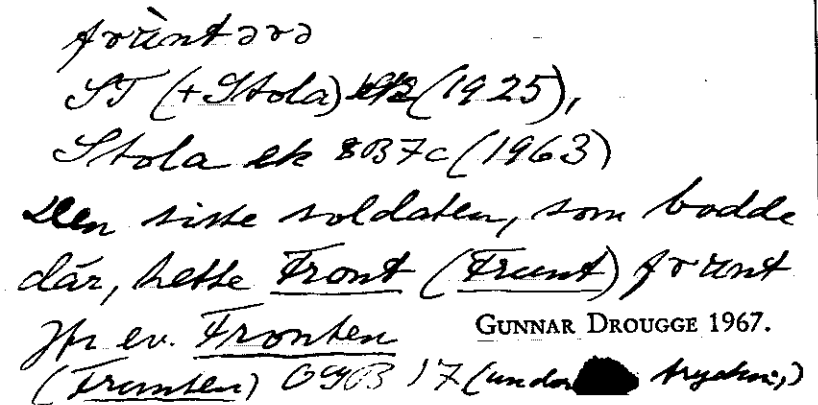 frùntərə
ST (+Stola) ek (1925),
Stola ek 8B7c (1963)
Den siste soldaten, som bodde
där, hette Front (Frunt) frunt
Jfr ev. Fronten GUNNAR DROUGGE 1967.
(Frunten) OGB 17 (under tryckn.)